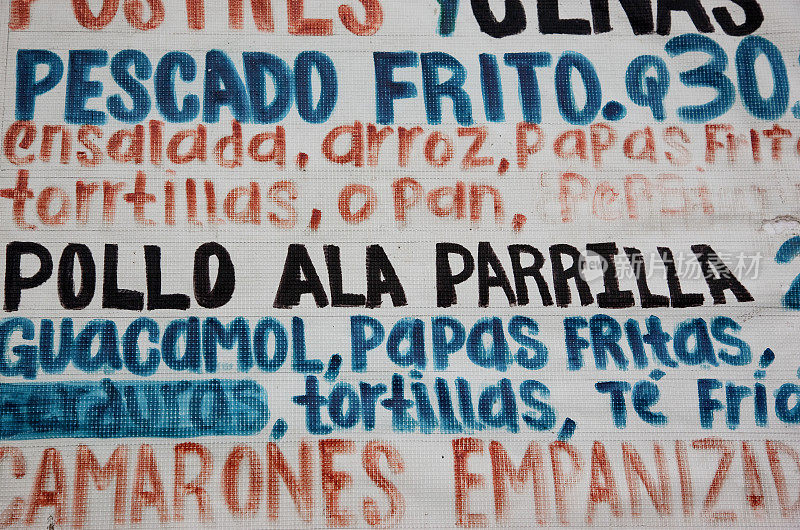 POSTRES Y CENAS
PESCADO FRITO. Q30.
ensalada, arroz, papas frita
torrtillas, o pan,
POLLO ALA PARRILLA 2
GUACAMOL, PAPAS FRITAS,
verduras, tortillas, Té Fría
CAMARONES EMPANIZAD